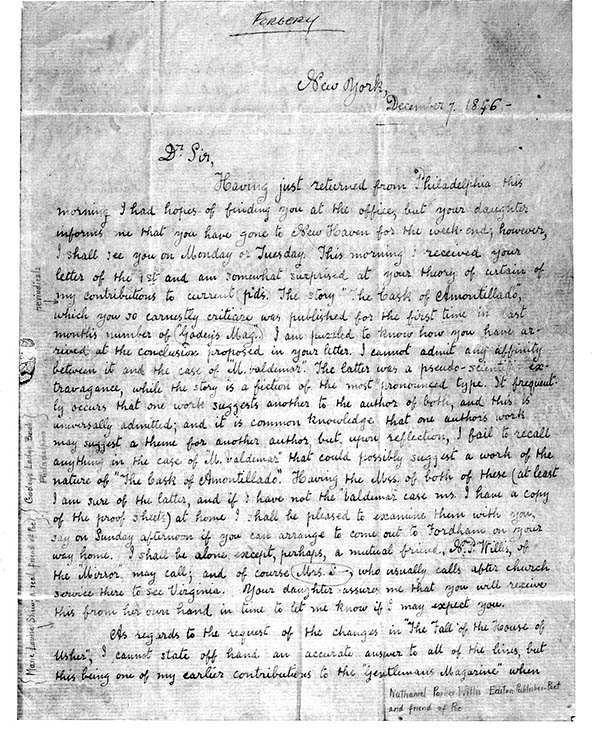 Forgery
New York,
December 7. 1846 -
Dr Sir,
Having just returned from Philadelphia this
morning I had hopes of finding you at the office, but your daughter
informs me that you have gone to New Haven for the week-end; however,
I shall see you on Monday or Tuesday. This morning I received your
letter of the 1st and am somewhat surprised at your theory of certain of
my contributions to current pds. The story "The Cask of Amontillado",
which you so earnestly criticize was published for the first time in last
month's number of (Godey's Mag.) I am puzzled to know how you have ar-
rived at the conclusion proposed in your letter. I cannot admit any affinity
between it and the case of "M. Valdemar". The latter was a pseudo-scientific ex-
travagance, while the story is a fiction of the most pronounced type. It frequent-
ly occurs that one work suggests another to the author of both, and this is
universally admitted; and it is common knowledge that one authors work
may suggest a theme for another author but, upon reflection, I fail to recall
anything in the case of M. Valdemar that could possibly suggest a work of the
nature of "The Cask of Amontillado." Having the Mss. of both of these (at least
I am sure of the latter, and if I have not the Valdemar case ms. I have a copy
of the proof sheets) at home I shall be pleased to examine them with you,
say on Sunday afternoon if you can arrange to come out to Fordham on your
way home. I shall be alone except, perhaps, a mutual friend, N.P. Willis, of
the "Mirror" may call; and of course (Mrs. S-), who usually calls after church
service there to see Virginia. Your daughter assures me that you will receive
this from her own hand in time to let me know if I may expect you.
As regards to the request of the changes in "The Fall of the House of
Usher", I cannot state off hand an accurate answer to all of the lines, but
this being one of my earlier contributions to the "Gentleman's Magazine" when
Nathaniel Parker Willis Editor-Publisher-Poet
and friend of Poe
periodicals
(Godey's Lady's Book)
Philadelphia
(Marie Louise Shew a real friend of Poe)